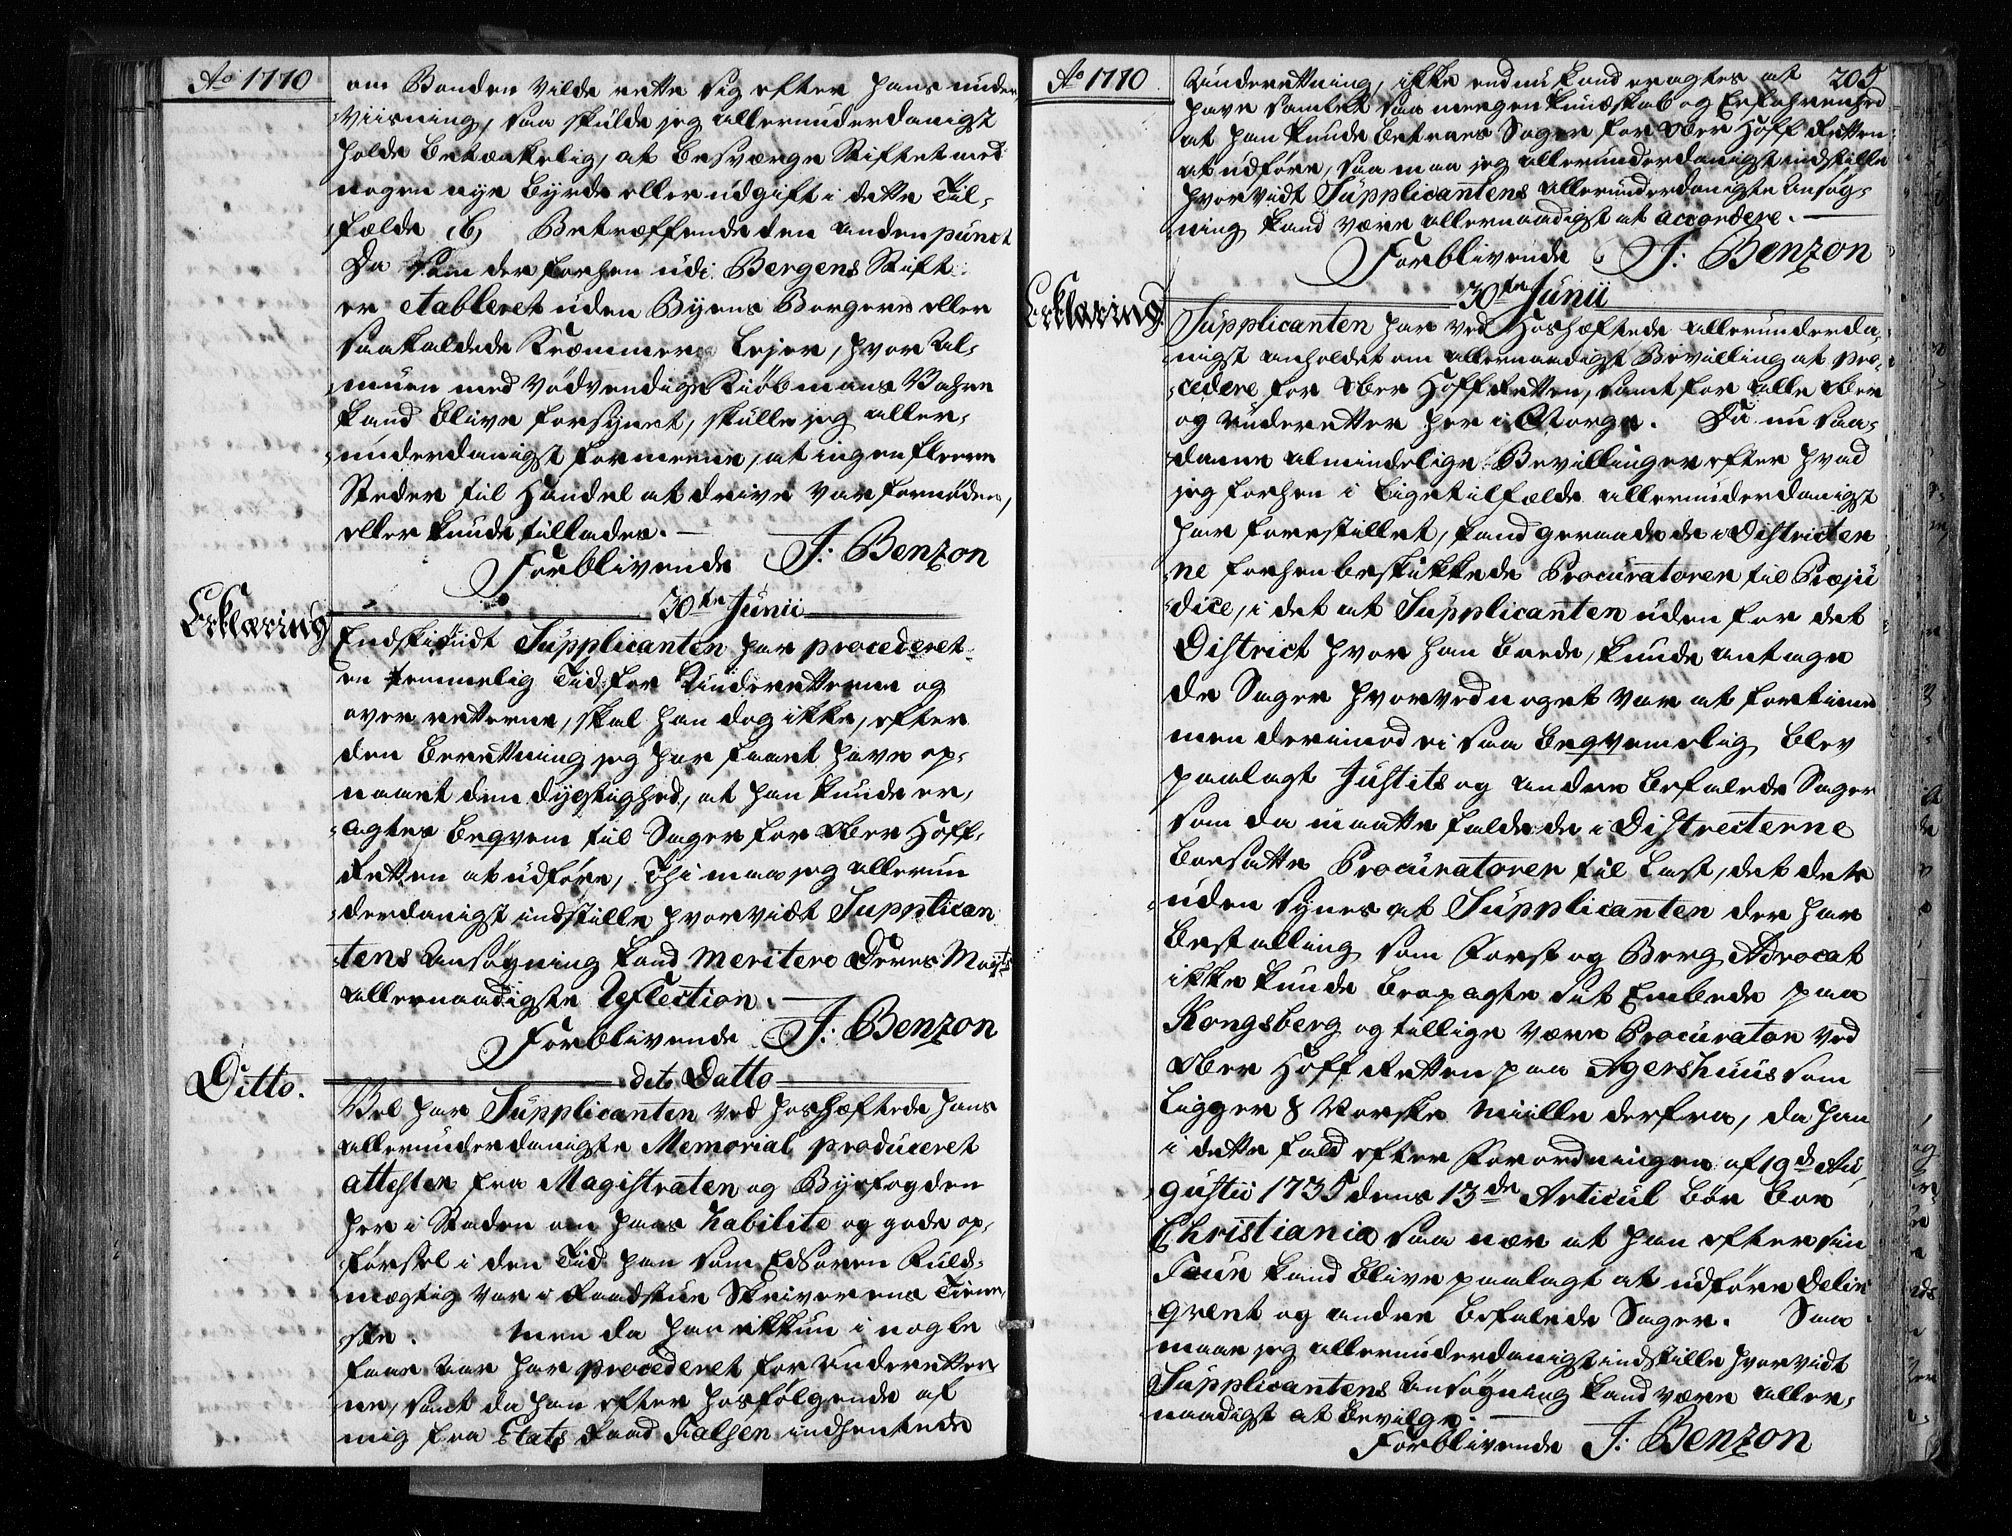 Ao 1770
om Bonden vilde rette sig efter hans under-
viisning, saa skulde jeg allerunderdanigst
holde betænkelig, at besværge Stiftet med
nogen nye Byrde eller udgift i dette Til-
fælde (b) Betræffende den anden punct
Da som der forhen udi Bergens Stift
er etableret uden Byens Borgere eller
saakaldede Kræmmer Lejer, hvor Al-
muen med nødvendige Kiøbmans Vahre
kand blive forsynet, skulle jeg aller-
underdanigst formeene, at ingen fleere
Steder til Handel at drive var fornøden,
eller kunde tillades. —
Forblivende J: Benzon
Erklæring
30te Junii
Endskiøndt Supplicanten har procederet
en temmelig Tid for Underretterne og
overretterne, skal han dog ikke, efter
den beretning jeg har faaet have op-
naaet den dygtighed, at han kunde er-
agtes beqvem til Sager for Ober Hoff-
Retten at udføre, Thi maa jeg allerun
derdanigst indstille hvorvidt Supplican
tens Ansøgning kand meritere Deres Mayts
allernaadigste Reflection. —
Forblivende J: Benzon
Ditto.
dito Datto
Vel har Supplicanten ved hoshæftede hans
allerunderdanigste Memorial produceret
attester fra Magistraten og Byefogden
her i Staden om hans habilite og gode op-
førsel i den Tid han som Edsoren Fuld-
mægtig var i Raadstue Skriverens Tiene-
ste. Men da han ikkun i nogle
faae Aar har procederet for Underretter
ne, samt da han efter hosfølgende af
mig fra Etats Raad Falsen indhentede
Ao 1770
205
Underretning, ikke endnu kand eragtes at
have samlet saa megen kundskab og Erfahrenhed
at han kunde betroes Sager for Ober Hoff Retten
at udføre, saa maa jeg allerunderdanigst indstille
hvorvidt Supplicantens allerunderdanigste Ansøg-
ning kand være allernaadigst at accordere. —
Forblivende J: Benzon
Erklæring
30te Junii
Supplicanten har ved Hoshæftede allerunderda-
nigst anholdet om allernaadigst Bevilling at pro-
cedere for Ober Hoff Retten, samt for alle Ober
og underretter her i Norge. Da nu saa-
danne almindelige Bevillinger efter hvad
jeg forhen i lige tilfælde allerunderdanigst
har forestillet, kand geraade de i Districter
ne forhen beskikkede Procuratorer til Præju
dice, i det at Supplicanten uden for det
District hvor han boede, kunde antage
de Sager hvorved noget var at fortiene
men derimod ei saa beqvemelig blev
paalagt Justits og andre befalede Sager
som da maatte falde de i Districterne
boesatte Procuratorer til Last, det des
uden synes at Supplicanten der har
Bestalling som Forst og Berg Advocat
ikke kunde beopagte sit Embede paa
Kongsberg og tillige være Procurator ved
Ober Hoff Retten paa Agershuus som
ligger 8 Norske Miille derfra, da han
i dette fald efter Forordningen af 19de Au-
gustii 1735 dens 13de Articul bør boe
Christiania saa nær at han efter sin
Tour kand blive paalagt at udføre Delin
qvent og andre befalede Sager. Saa
maa jeg allerunderdanigst indstille hvorvidt
Supplicantens Ansøgning kand være aller-
naadigst at bevilge. —
Forblivende J: Benzon